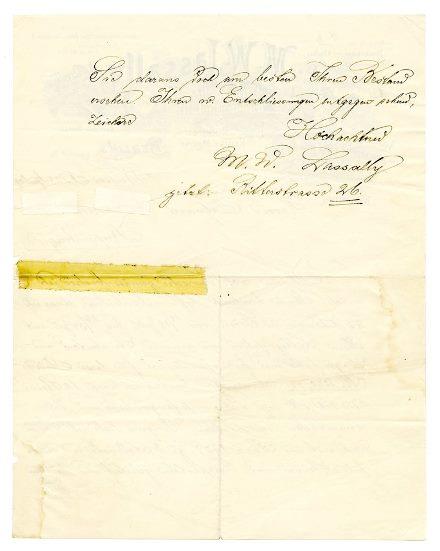 Sie daraus doch am besten Ihren Bestand
ersehen. Ihren w. Entschliessungen entgegen sehend,
zeichne
Hochachtend
M. W. Lassally
jetzt: Ritterstrasse 26.